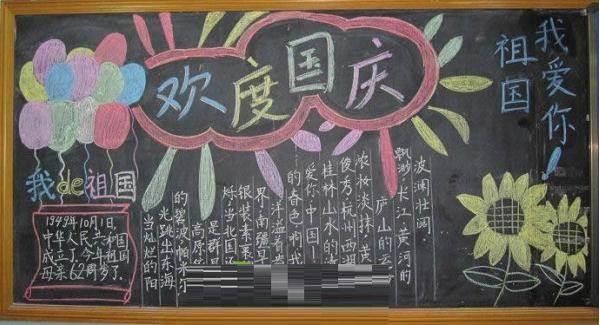 欢度国庆
我爱你!
祖国
我de祖国
1949年10月1日,
中华人民共和国
成立了,今年祖国
母亲62周岁了.
当灿烂的阳
光跳出东海
的碧波,帕米尔
高原
是群星
烁,当北国
银装素裹
界,南疆早
洋溢着
的春色,啊,我
爱你,中国!
桂林山水的清
俊秀,杭州西湖
浓妆淡抹,黄
庐山的云
飘渺,长江,黄河的
波澜壮阔.